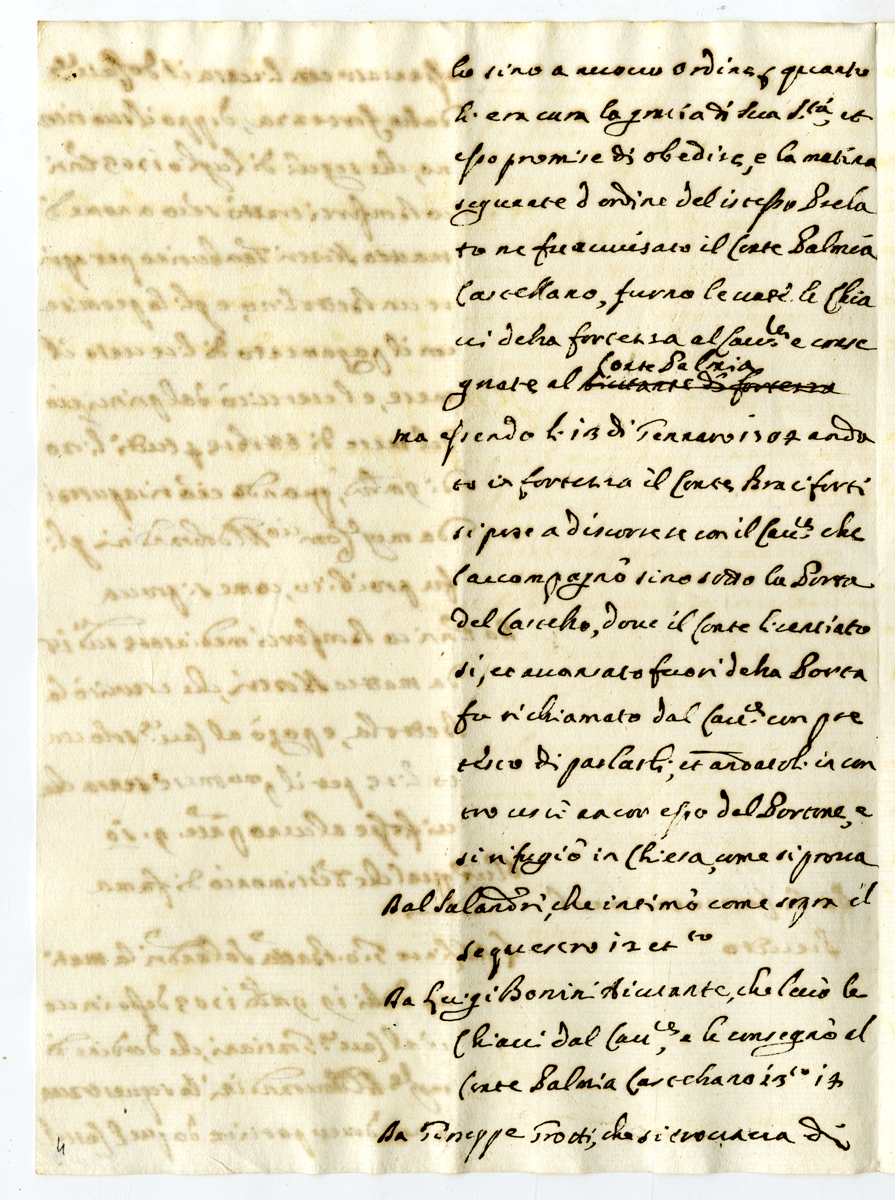 lo sino a nuovo ordine, quanto
li era cara la gratia di Sua S.tà, et
esso promise di obedire, e la matina
seguente d'ordine del istesso Prela
to ne fu avvisato il Conte Palmia
Castellano, furno levati le Chia
vi della fortezza al Cav.re e conse
gnate al Conte Palmia
ma essendo li 13 di Gennaro 1704 anda
to in fortezza il Conte Braciforti
si pose a discorrere con il Cav.re che
l'accompagnò sino sotto la Porta
del Castello, dove il Conte licentiato
si, et avansato fuori della Porta
fu richiamato dal Cav.re con pre
testo di parlarli, et andatoli in con
tro uscì ancor esso del Portone, e
si rifugiò in Chiesa, come si prova
Dal Salandri, che intimò come sopra il
sequestro 12 et
Da Luigi Bonini Aiutante, che levò le
Chiavi dal Cav.re, e le consegnò al
Conte Palmia Castellano 13 14
Da Giuseppe Trotti, che si trovava di
4